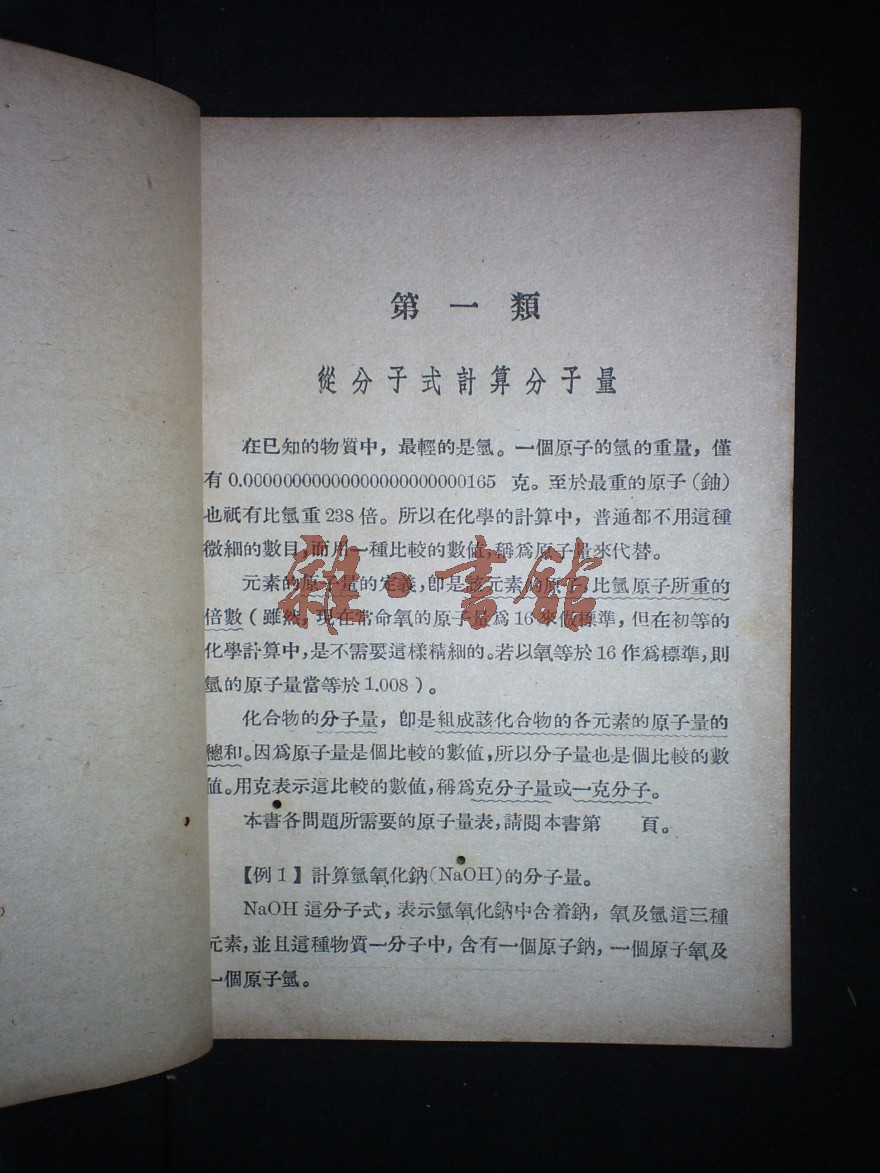 第一類
從分子式計算分子量
在已知的物質中，最輕的是氫。一個原子的氫的重量，僅
有 0.00000000000000000000000165 克。至於最重的原子（鈾）
也祇有比氫重 238 倍。所以在化學的計算中，普通都不用這種
微細的數目，而用一種比較的數値，稱爲原子量來代替。
元素的原子量的定義，卽是該元素的原子，比氫原子所重的
倍數（雖然，現在常命氧的原子量爲 16 來做標準，但在初等的
化學計算中，是不需要這樣精細的。若以氧等於 16 作爲標準，則
氫的原子量當等於 1.008）。
化合物的分子量，卽是組成該化合物的各元素的原子量的
總和。因爲原子量是個比較的數値，所以分子量也是個比較的數
値。用克表示這比較的數値，稱爲克分子量或一克分子。
本書各問題所需要的原子量表，請閱本書第　　頁。
【例 1】計算氫氧化鈉(NaOH)的分子量。
NaOH 這分子式，表示氫氧化鈉中含着鈉，氧及氫這三種
元素，並且這種物質一分子中，含有一個原子鈉，一個原子氧及
一個原子氫。
雜·書館